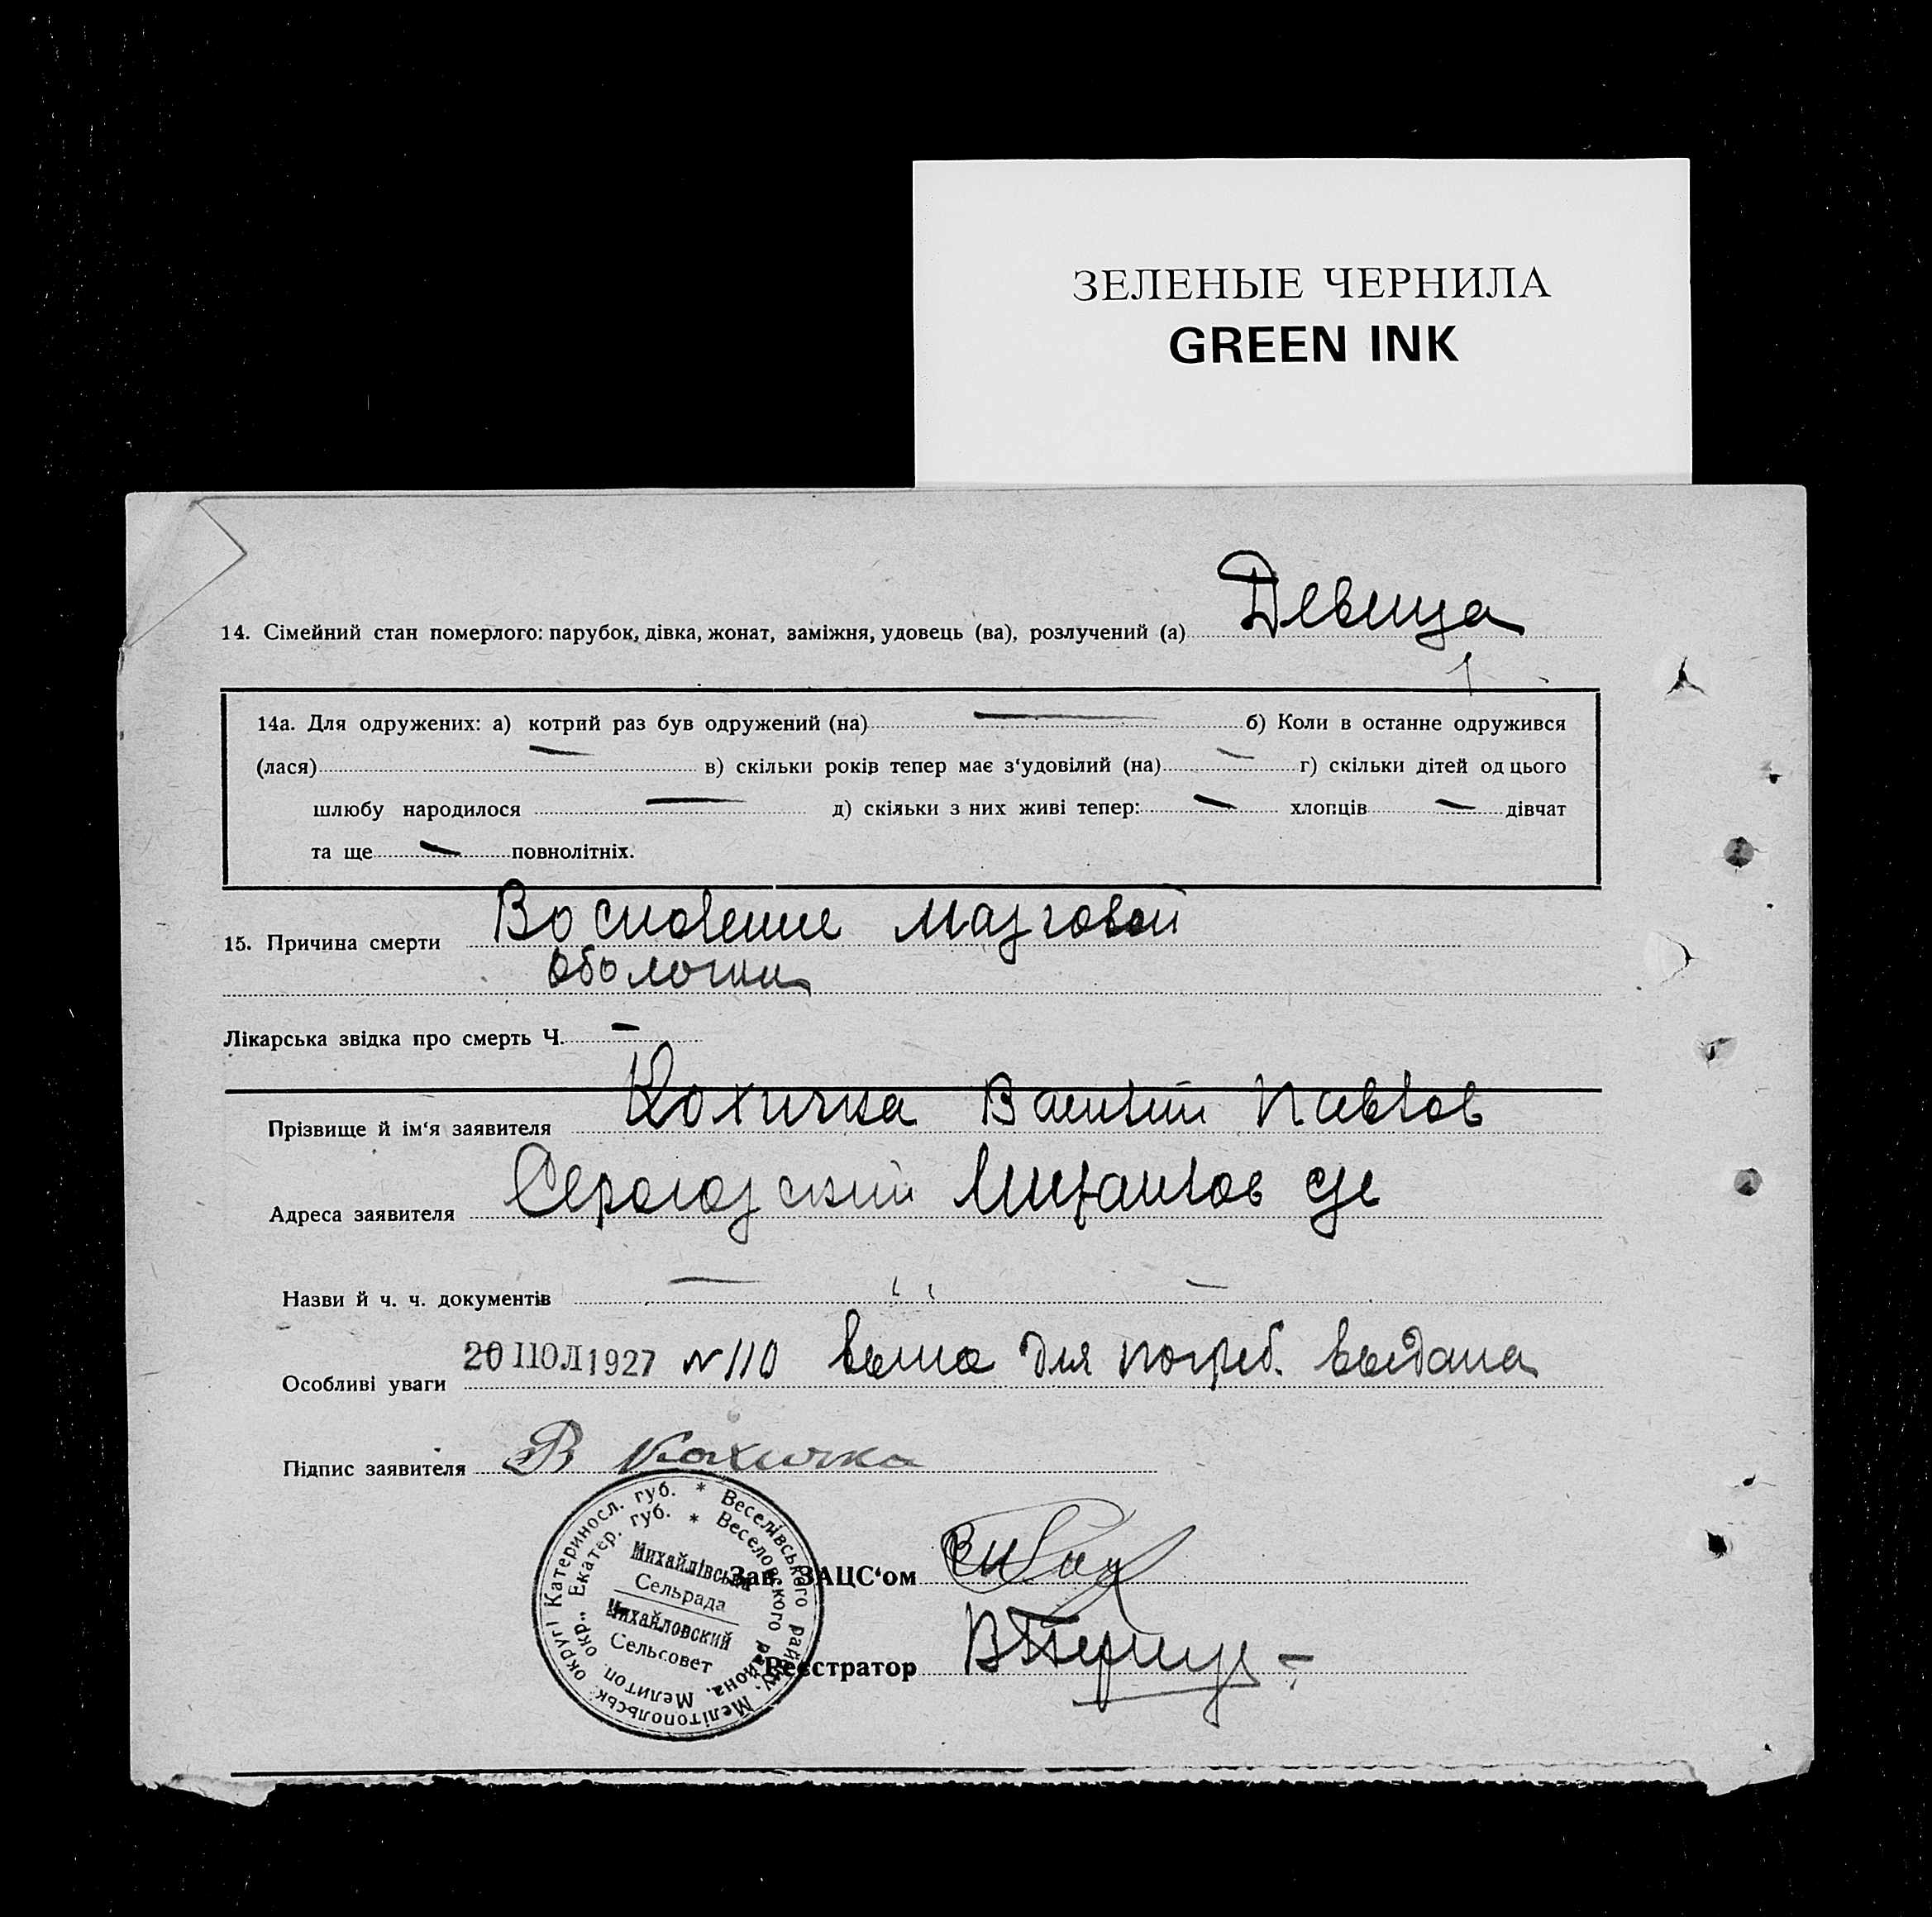 ЗЕЛЕНЫЕ ЧЕРНИЛА
GREEN INK
14. Сімейний стан померлого: парубок, дівка, жонат, заміжня, удовець (ва), розлучений (а) Девица
14а. Для одружених: а) котрий раз був одружений (на) — б) Коли в останне одружився
(лася) — в) скільки років тепер має з‘удовілий (на) — г) скільки дітей од цього
шлюбу народилося — д) скільки з них живі тепер: — хлопців — дівчат
та ще — повнолітніх.
15. Причина смерти Восполение мазговой
оболочки
Лікарська звідка про смерть Ч. —
Прізвище й ім‘я заявителя Кохичка Василий Павлов
Адреса заявителя Серогозский
Назви й ч. ч. документів —
Особливі уваги 20 ІЮЛ 1927 № 110 для погреб. выдана
Підпис заявителя В Кохичка
Зав. ЗАЦС‘ом
Реєстратор
* Веселівського району, Мелітопольськ. округі Катериносл. губ.
* Веселовского района, Мелитоп. окр., Екатер. губ.
Михайлівська
Сельрада
Михайловский
Сельсовет